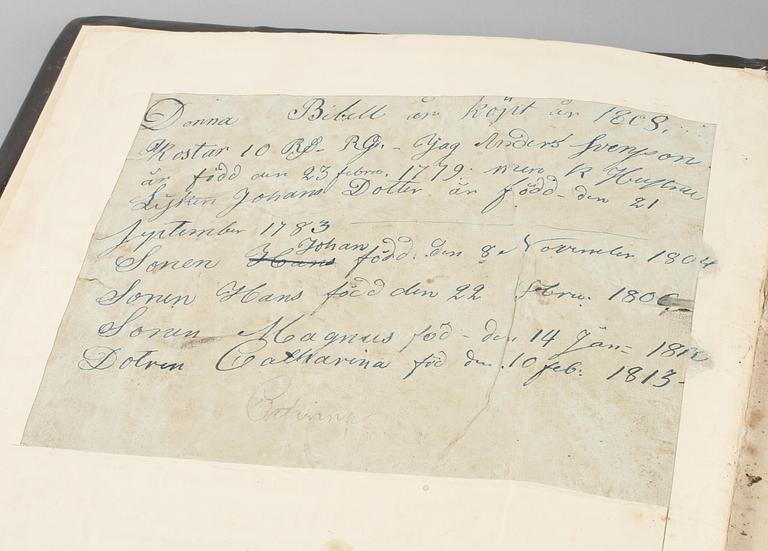 Denna Bibell är köpt år 1808.
Kostar 10 Rd. RGs. - Jag Anders Svenson
är född den 23 febru. 1779. min K Hustru
Lisken Johans Dotter är född - den 21
September 1783
Sonen Johan född den 8 November 1804
Sonen Hans född den 22 febru. 1806
Sonen Magnus föd - den 14 Jan= 1810
Dotren Catharina föd den 10 feb: 1813-